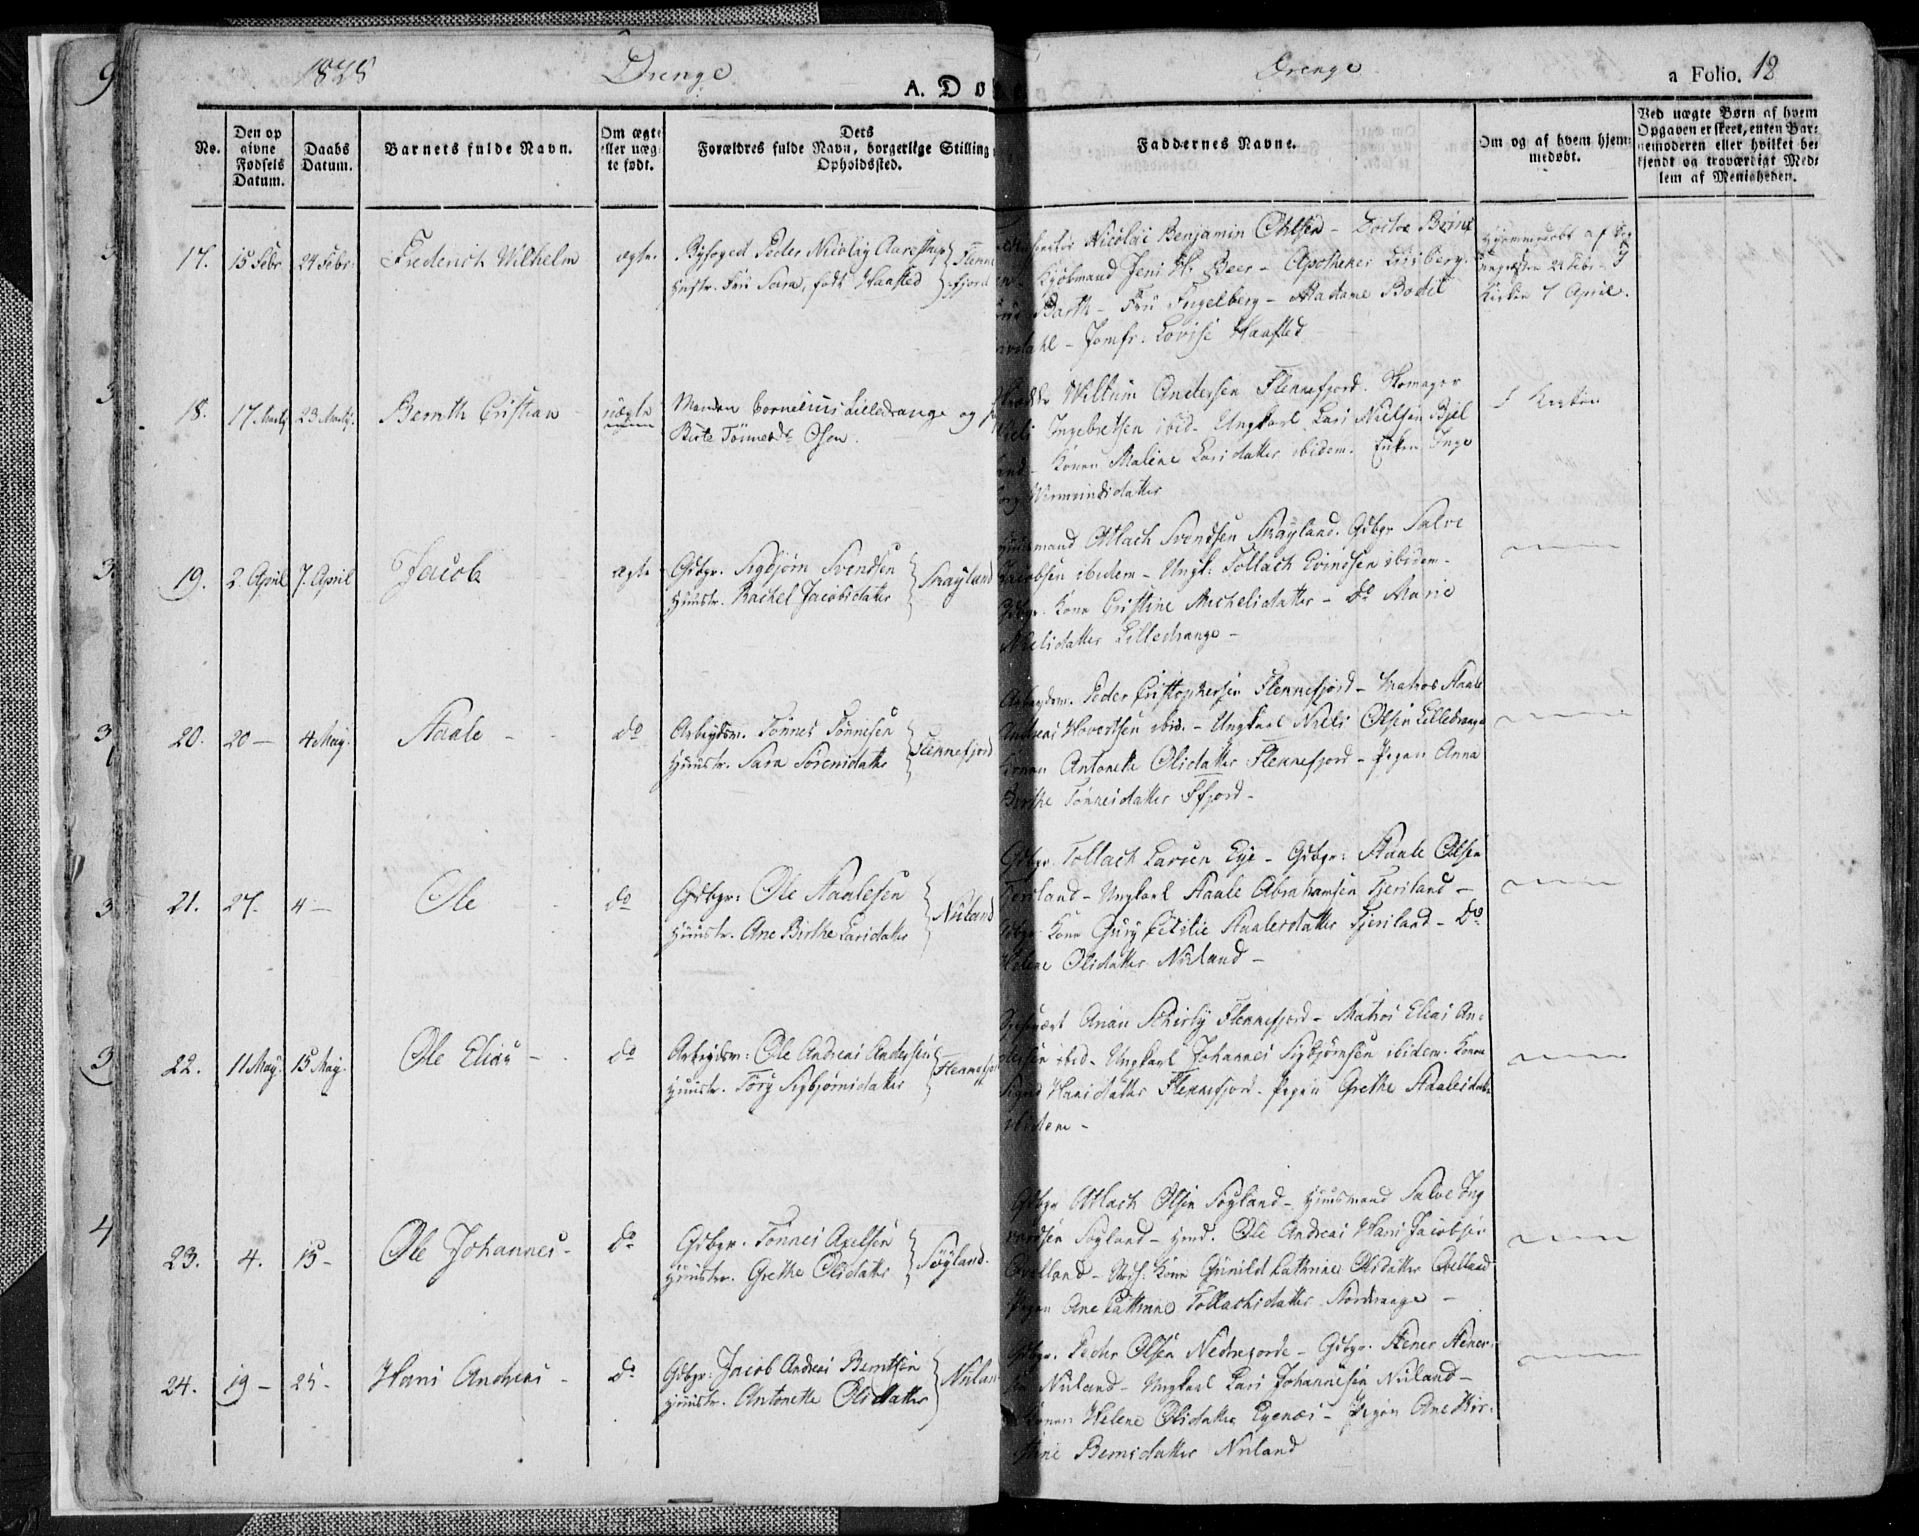 1828 Drenge
A. Dø
Drenge
a Folio. 12
No.
Den op
givne
Fødsels
Datum.
Daabs
Datum.
Barnets fulde Navn.
Om ægte
eller uæg
te født.
Dets
Forældres fulde Navn, borgerlige Stilling
Opholdssted.
Faddernes Navne.
Om og af hvem hjem:
medøbt.
Ved uægte Børn af hvem
Opgaven er skeet, enten Bar:
nemoderen eller hvilket be:
kjendt og troværdigt Med:
lem af Menigheden.
17. 15 Febr 24 Febr. Frederich Wilhelm ægte.
Byfoged Peder Nicolay Aarestrup
Hustr. Fru Sara, født Haasted
Flekke
fjord
Nicolai Benjamin Ohlsen - Doctor
Kjøbmand Jens H. Beer - Apotheker
Barth - Fru Engelberg - Madame Bodil
- Jomfr: Lovise Haasted
Hjemmedøbt af
24 Febr - I
Kirken 7 April.
18. 17 Marts 23 Marts. Bernth Cristian uægte
Manden Cornelius Lilledrange og
Birte Tønnesdr Osen.
Willum Andersen Flekkefjord. Skomager
Ingebretsen ibid - Ungkarl Lars Nielsen
Konen Maline Larsdatter ibidem. Enken Inge
I Kirken
19. 2. April 7. April Jacob ægte
Gdbgr. Sigbjørn Svendsen
Huustr. Rachel Jacobsdatter
Skayland
Huusmand Atlach Svendsen Skayland. Gdbgr Salve
Jacobsen ibidem - Ungk: Tollach Evindsen ibidem -
Gdbgr. Kone Cristine Michelsdatter - Do Marie
Nielsdatter Lilledrange -
20. 20 - 4 May. Staale - do
Arbeydsm. Tønnes Tønnesen
Huustr. Sara Sørensdatter
Flekkefjord
Arbeydsm. Peder Cristophersen Flekkefjord - Matros Staale
Andreas Hovertsen ibid. - Ungkarl Niels Olsen Lilledrange
Konen Antonette Olsdatter Flekkefjord - Pigen Anna
Berthe Tønnesdatter Ffjord -
21. 27. 4 - Ole do
Gdbgr: Ole Staalesen
Huustr. Ane Birthe Larsdatter
Nuland
Gdbgr. Tollach Larsen Eye - Gdbgr: Staale Olsen
Fjeriland - Ungkarl Staale Abrahamsen Fjeriland -
Gdbgr: Kone Gury Cecilie Staalesdatter Fjeriland - Do
Helene Olsdatter Nuland -
22. 11 May. 15 May. Ole Elias - do
Arbeydsm: Ole Andreas Andersen
Huustr. Tory Sigbjørnsdatter
Flekkefjor
Anan Flekkefjord - Matros Elias An:
dersen ibid - Ungkarl Johannes Sigbjørnsen ibidem. Konen
Hansdatter Flekkefjord. Pigen Grethe Staalesdatter
ibidem -
23. 4. 15 - Ole Johannes - do
Gdbgr. Tønnes Axelsen
Huustr. Grethe Olsdatter
Søyland.
Gdbgr Atlach Olsen Søyland - Huusmand Salve Ing
Søyland - Hmd. Ole Andreas Hans Jacobsen
- Kone Gunild Cathrine Olsdatter
Pigen Ane Cathrine Tollachsdatter Norddrange -
24. 19 - 25 - Hans Andreas - do
Gdbgr: Jacob Andreas Berntsen
Huustr. Antonette Olsdatter
Nulan
Gdbgr. Peder Olsen - Gdbgr. Stener Stener:
sen Nuland - Ungkarl Lars Johannesen Nuland -
Konen Helene Olsdatter Egenæs - Pigen Ane Kir:
stine Berntsdatter Nuland